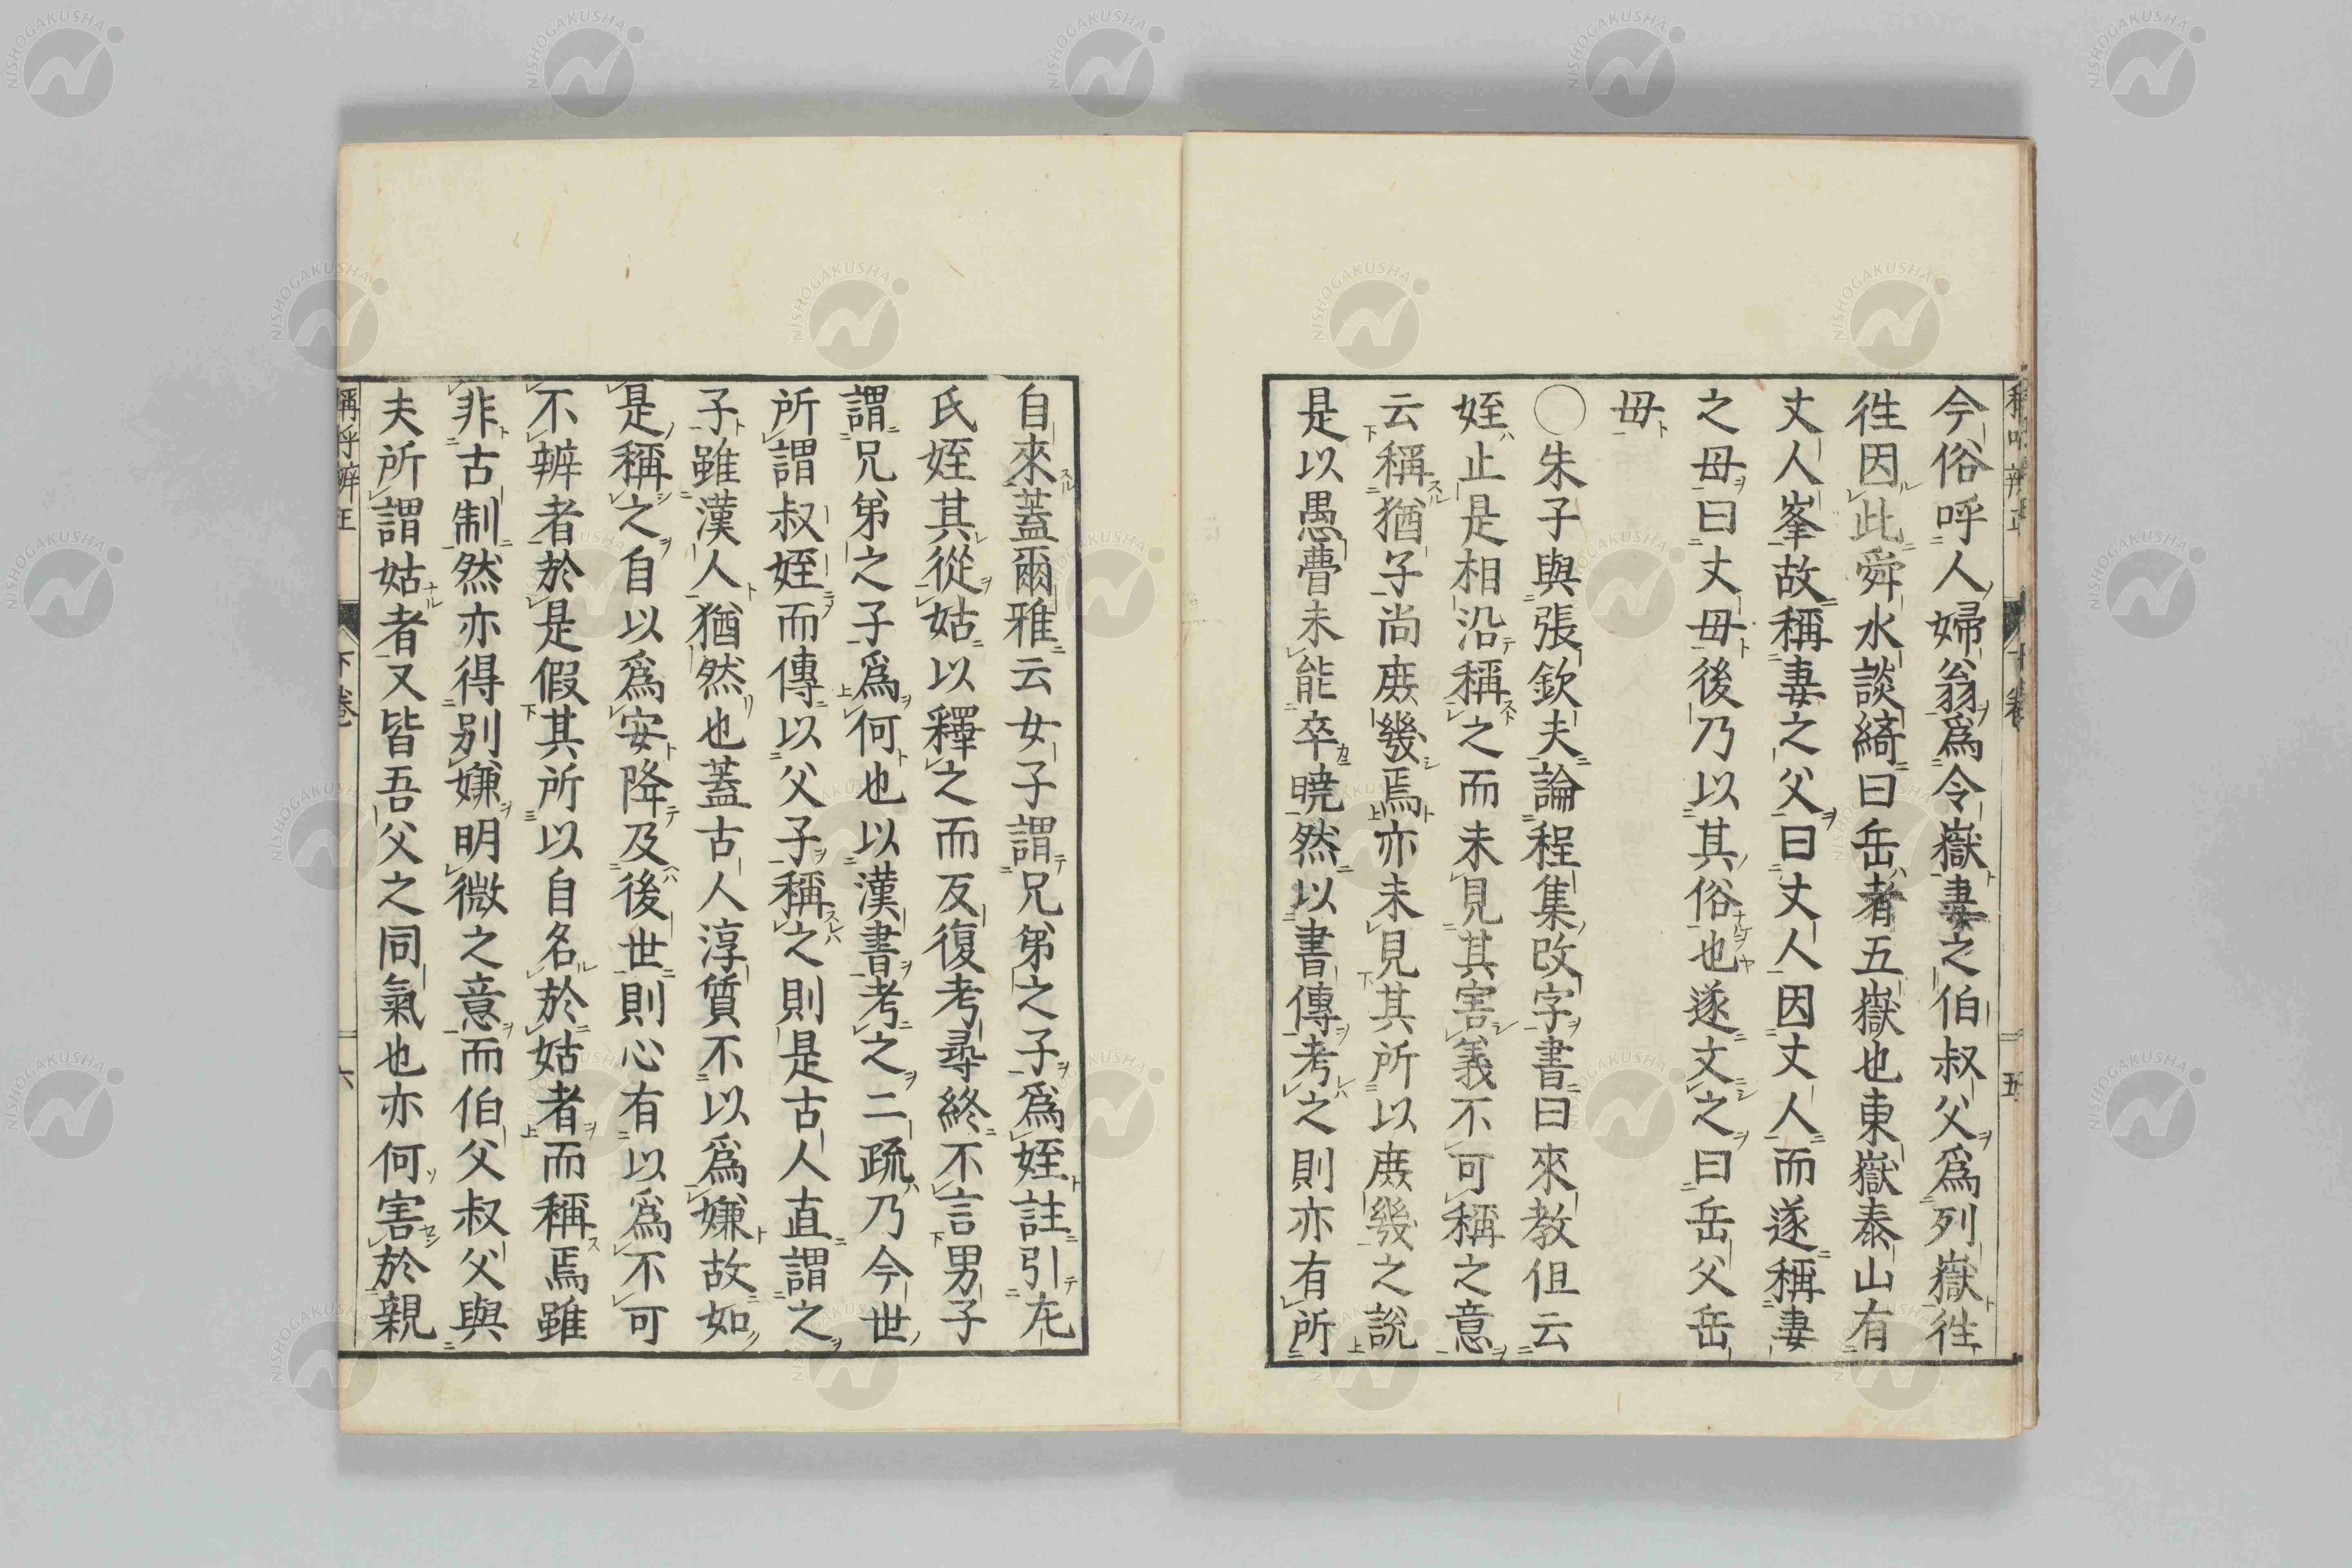 今俗呼人婦翁爲令嶽妻之伯叔父爲列嶽徃
徃因此舜水談綺曰岳者五嶽也東嶽泰山有
丈人峯故稱妻之父曰丈人因丈人而遂稱妻
之母曰丈母後乃以其俗也遂文之曰岳父岳
母
○朱子與張欽夫論程集改字書曰來教但云
姪止是相沿稱之而未見其害義不可稱之意
云稱猶子尚庻幾焉亦未見其所以庻幾之說
是以愚曹未能卒曉然以書傳考之則亦有所
自來蓋爾雅云女子謂兄弟之子爲姪註引左
氏姪其從姑以釋之而反復考尋終不言男子
謂兄弟之子爲何也以漢書考之二疏乃今世
所謂叔姪而傳以父子稱之則是古人直謂之
子雖漢人猶然也蓋古人淳質不以爲嫌故如
是稱之自以爲安降及後世則心有以爲不可
不辨者於是假其所以自名於姑者而稱焉雖
非古制然亦得別嫌明微之意而伯父叔父與
夫所謂姑者又皆吾父之同氣也亦何害於親
稱呼辨正
下卷
六
五
NISHOGAKUSHA